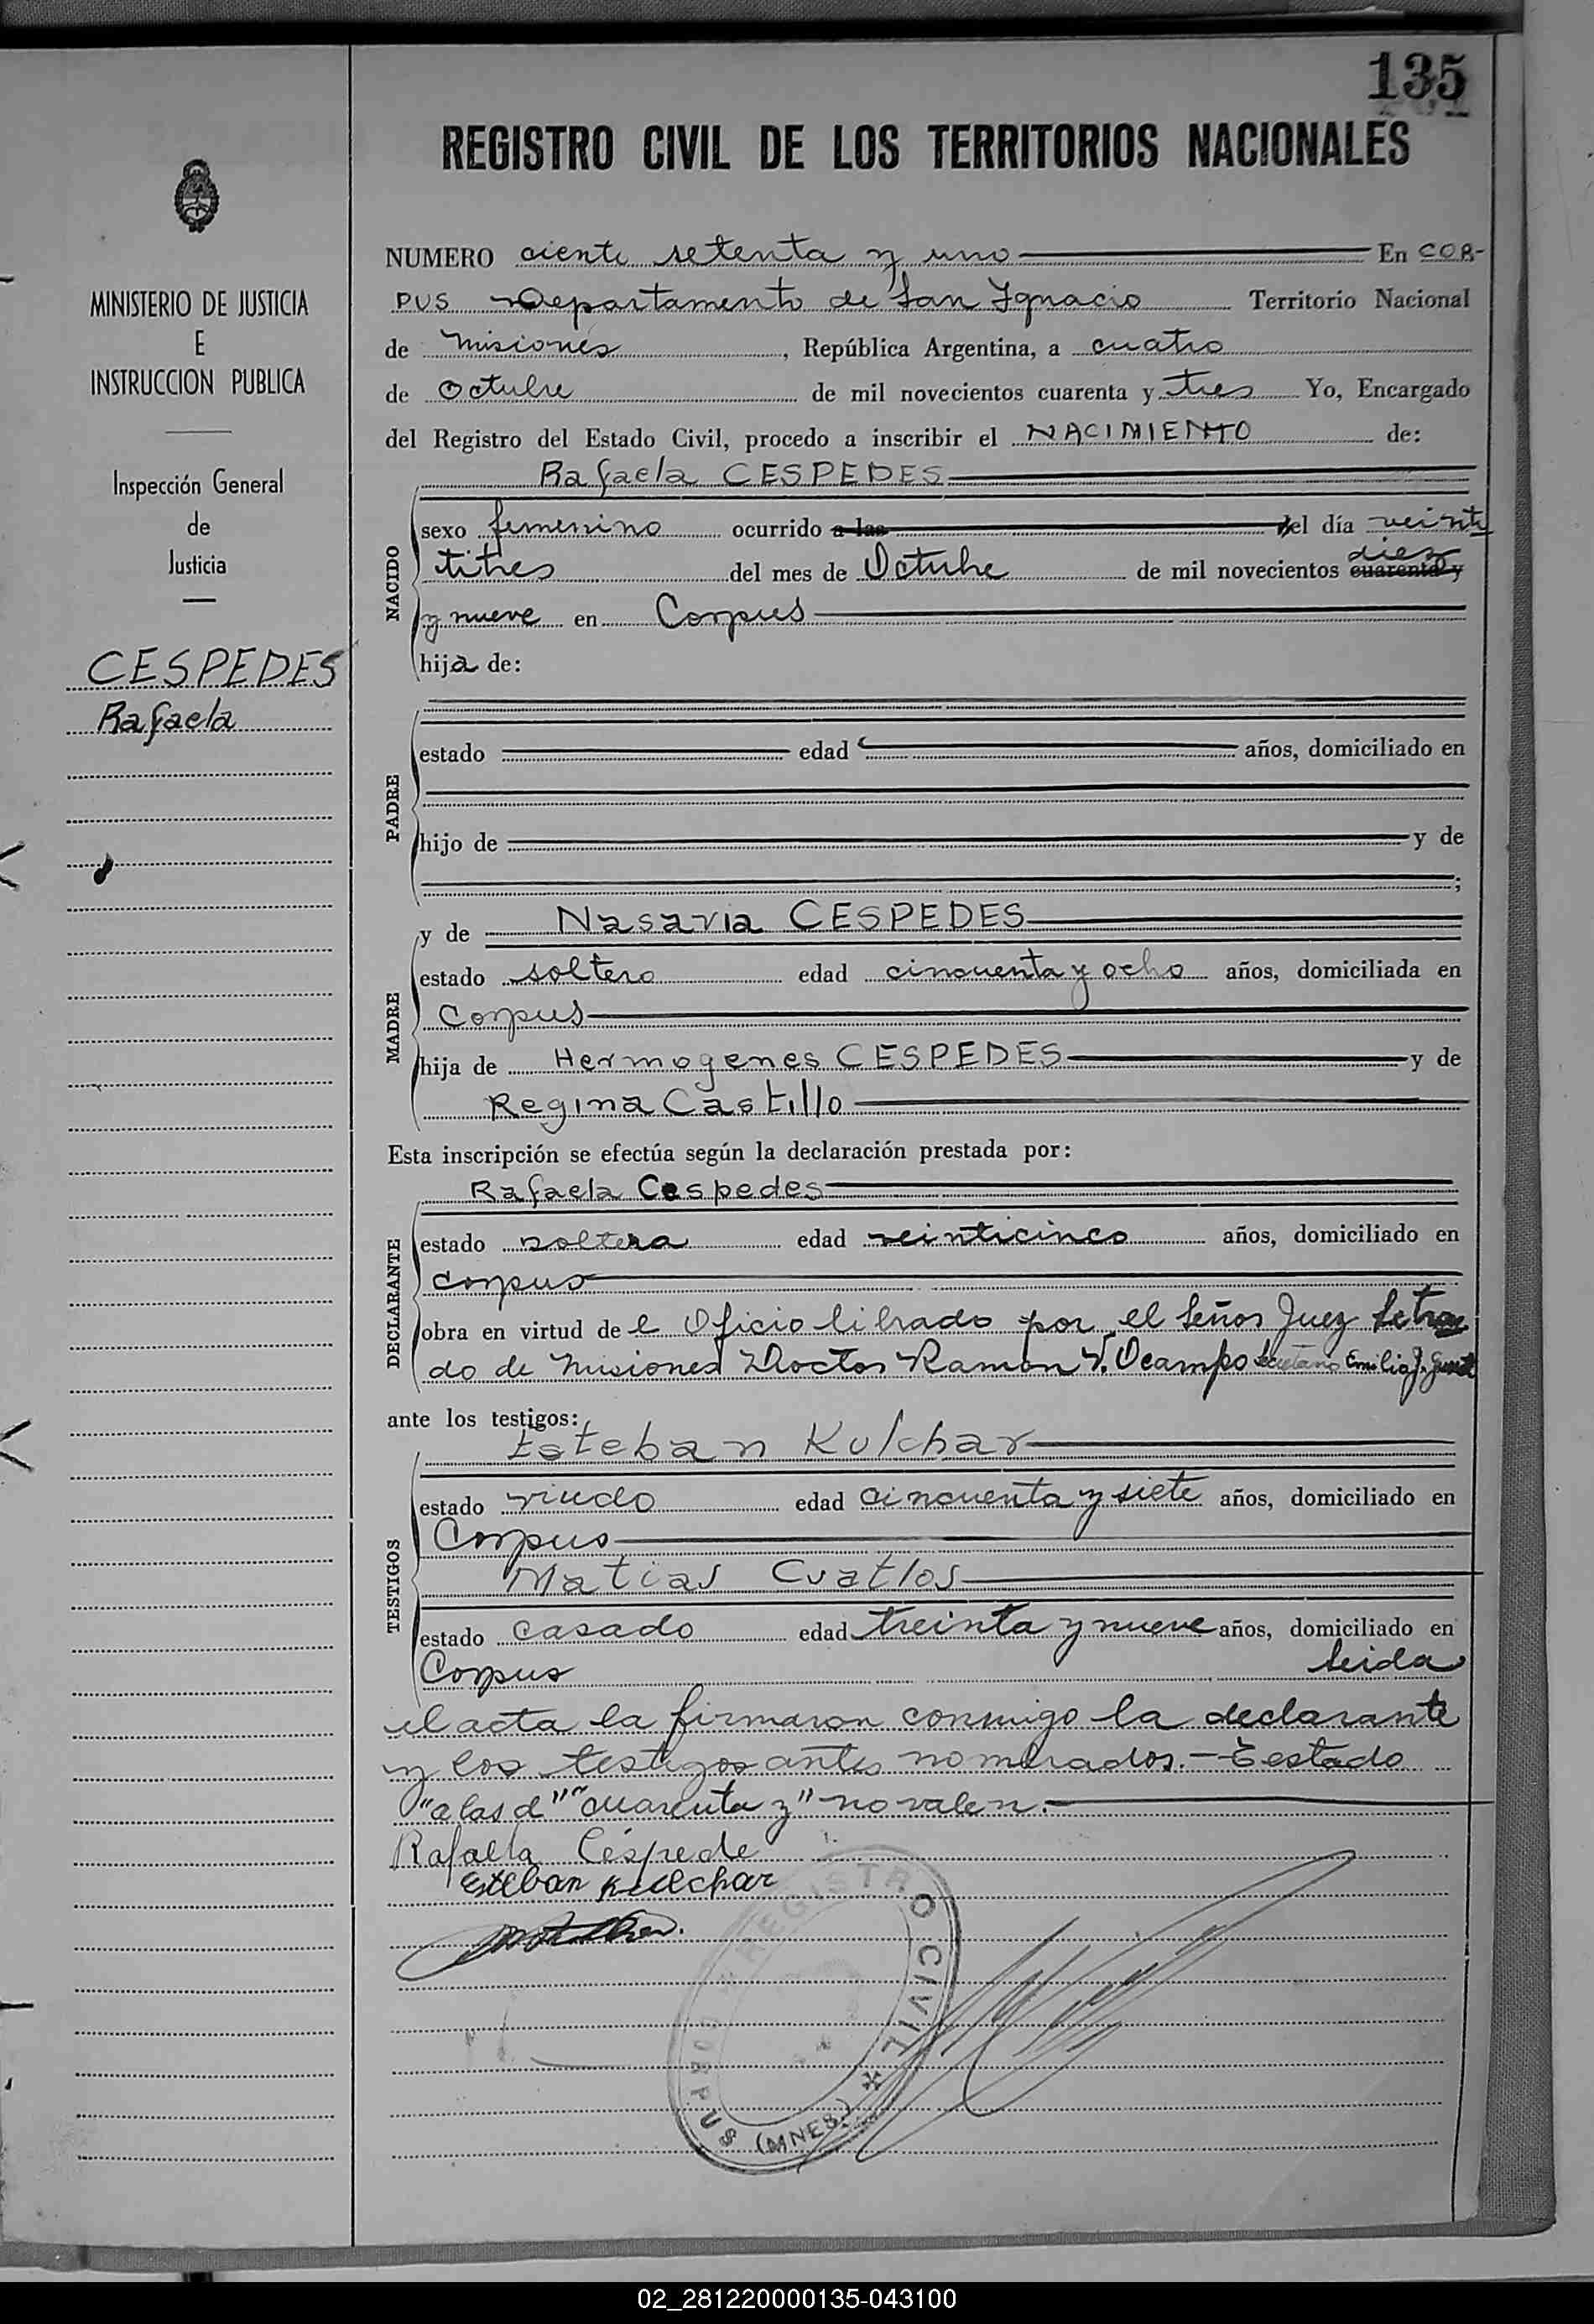 135
REGISTRO CIVIL DE LOS TERRITORIOS NACIONALES
MINISTERIO DE JUSTICIA
E
INSTRUCCION PUBLICA
Inspección General
de
Justicia
CESPEDES
Rafaela
NUMERO ciento setenta y uno En COR-
PUS Departamento de San Ignacio Territorio Nacional
de Misiones, República Argentina, a cuatro
de Octubre de mil novecientos cuarenta y tres Yo, Encargado
del Registro del Estado Civil, procedo a inscribir el NACIMIENTO de:
Rafaela CESPEDES
NACIDO
sexo femenino ocurrido a las del día veinti
titres del mes de Octubre de mil novecientos cuarenta y diez
y nueve en Corpus
hija de:
PADRE
estado edad años, domiciliado en
hijo de y de
;
MADRE
y de Nasaria CESPEDES
estado soltero edad cincuenta y ocho años, domiciliada en
Corpus
hija de Hermogenes CESPEDES y de
Regina Castillo
Esta inscripción se efectúa según la declaración prestada por:
DECLARANTE
Rafaela Cespedes
estado soltera edad veinticinco años, domiciliado en
corpus
obra en virtud de l Oficio librado por el Señor Juez Letra
do de Misiones Doctor Ramon V. Ocampo Secretario Emilio J.
ante los testigos:
TESTIGOS
Esteban Kulchar
estado viudo edad cincuenta y siete años, domiciliado en
Corpus
Matias Cuatlos
estado casado edad treinta y nueve años, domiciliado en
Corpus Leida
el acta la firmaron conmigo la declarante
y los testigos antes nomerados.- Testado
"a las d" "cuarenta y" no valen.
Rafaela Céspede
Esteban Kulchar
REGISTRO CIVIL
CORPUS (MNES)
02_281220000135-043100